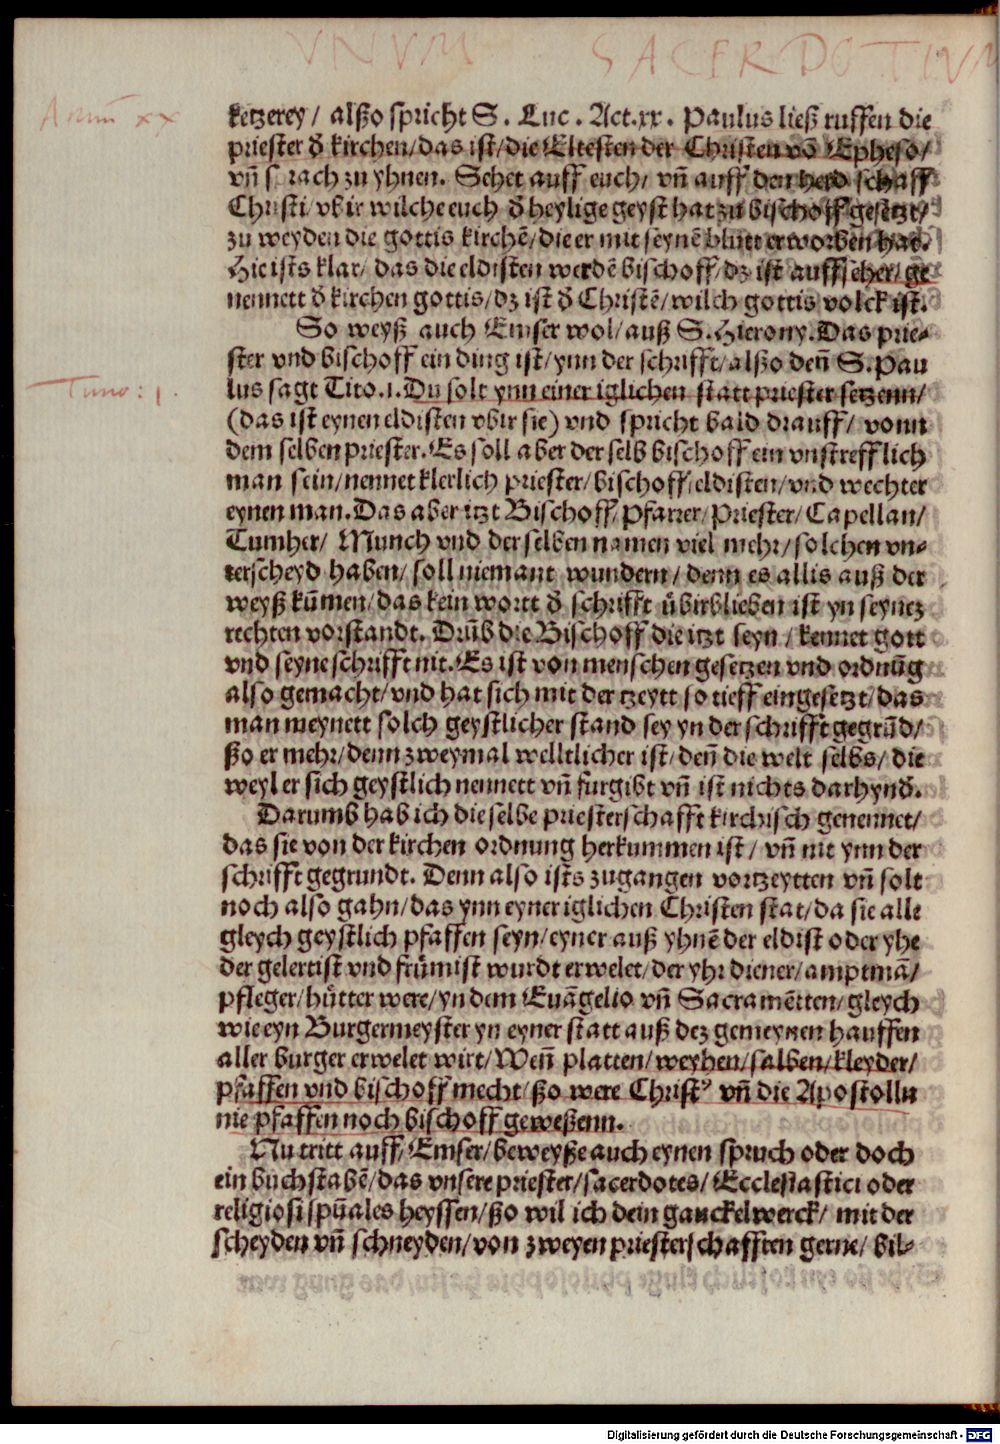 VNVM SACERDOTIVM
ketzerey/ alßo spricht S. Luc. Act.xx. Paulus ließ ruffen die
priester ď kirchen/das ist/die Eltesten der Christen vō Epheso/
vn̄ sprach zu yhnen. Sehet auff euch/ vn̄ auff den herd schaff
Christi/ vbir wilche euch ď heylige geyst hat zu bischoff gesetzt/
zu weyden die gottis kirchē/die er mit seynē blutt erworben hat.
Hie ists klar/ das die eldisten werdē bischoff/ dz ist auffseher/ ge
nennett ď kirchen gottis/dz ist ď Christē/wilch gottis volck ist.
So weyß auch Emser wol/auß S.Hierony. Das prie⸗
ster vnd bischoff ein ding ist/ynn der schrifft/alßo den̄ S.Pau
lus sagt Tito.1. Du solt ynn einer iglichen statt priester setzenn/
(das ist eynen eldisten vbir sie) vnd spricht bald drauff/ vonn
dem selben priester. Es soll aber der selb bischoff ein vnstrefflich
man sein/nennet klerlich priester/bischoff/eldisten/vnd wechter
eynen man. Das aber itzt Bischoff/Pfarrer/Priester/Capellan/
Tumher/ Munch vnd der selben namen viel mehr/solchen vn⸗
terscheyd haben/soll niemant wundern/denn es allis auß der
weyß kūmen/das kein wortt ď schrifft übirblieben ist yn seynez
rechten vorstandt. Drūb die Bischoff die itzt seyn/kennet gott
vnd seyne schrifft nit. Es ist von menschen gesetzen vnd ordnūg
also gemacht/vnd hat sich mit der tzeytt so tieff eingesetzt/das
man meynett solch geystlicher stand sey yn der schrifft gegrūd/
ßo er mehr/denn zweymal welltlicher ist/den̄ die welt selbs/ die
weyl er sich geystlich nennett vn̄ furgibt vn̄ ist nichts darhynď.
Darumb hab ich die selbe priesterschafft kirchisch genennet/
das sie von der kirchen ordnung herkummen ist/ vn̄ nit ynn der
schrifft gegrundt. Denn also ists zugangen vortzeytten vn̄ solt
noch also gahn/das ynn eyner iglichen Christen stat/da sie alle
gleych geystlich pfaffen seyn/eyner auß yhnē der eldist oder yhe
der gelertist vnd frümist wurdt erwelet/der yhr diener/amptmā/
pfleger/hütter were/yn dem Euāgelio vn̄ Sacramētten/gleych
wie eyn Burgermeyster yn eyner statt auß dez gemeynen hauffen
aller burger erwelet wirt/Wen̄ platten/weyhen/salben/kleyder/
pfaffen vnd bischoff mecht/ßo were Christꝰ vn̄ die Apostolln
nie pfaffen noch bischoff geweßenn.
Nu tritt auff/Emser/beweyße auch eynen spruch oder doch
ein buchstabē/das vnsere priester/sacerdotes/Ecclesiastici oder
religiosi spūales heyssen/ßo wil ich dein gauckelwerck/ mit der
scheyden vn̄ schneyden/von zweyen priesterschafften gerne/ bil⸗
Digitalisierung gefördert durch die Deutsche Forschungsgemeinschaft - DFG